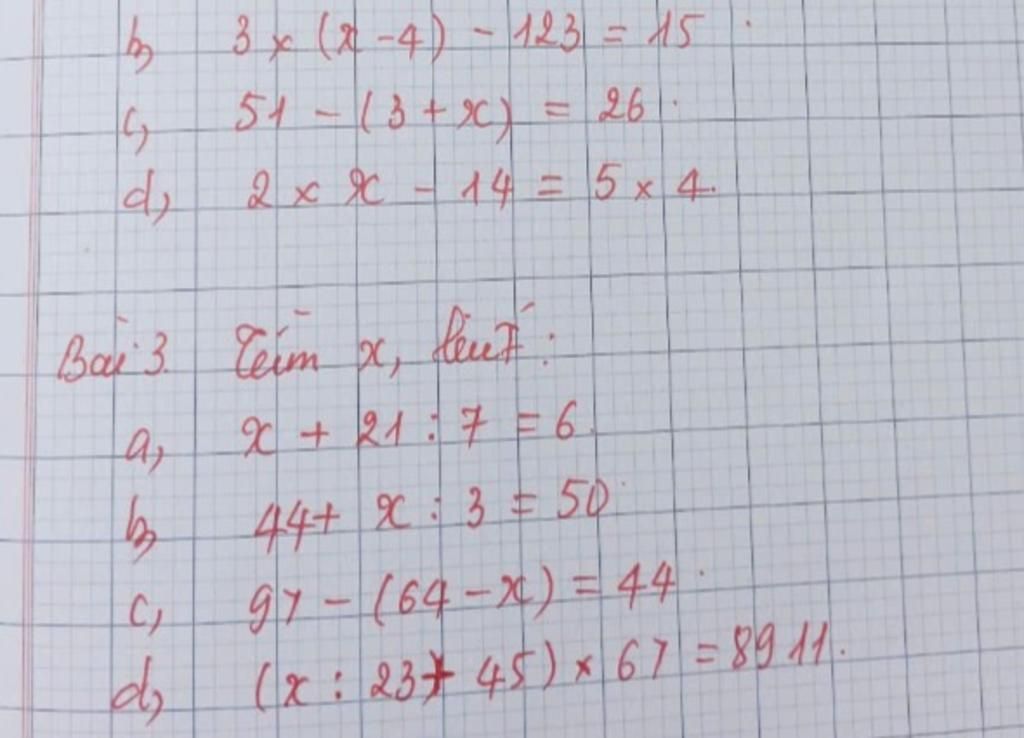 b, 3 x (x - 4) - 123 = 15.
c, 51 - (3 + x) = 26.
d, 2 x x - 14 = 5 x 4.
Bài 3. Tìm x, biết:
a, x + 21 : 7 = 6.
b, 44 + x : 3 = 50.
c, 97 - (64 - x) = 44.
d, (x : 23 + 45) x 67 = 8911.